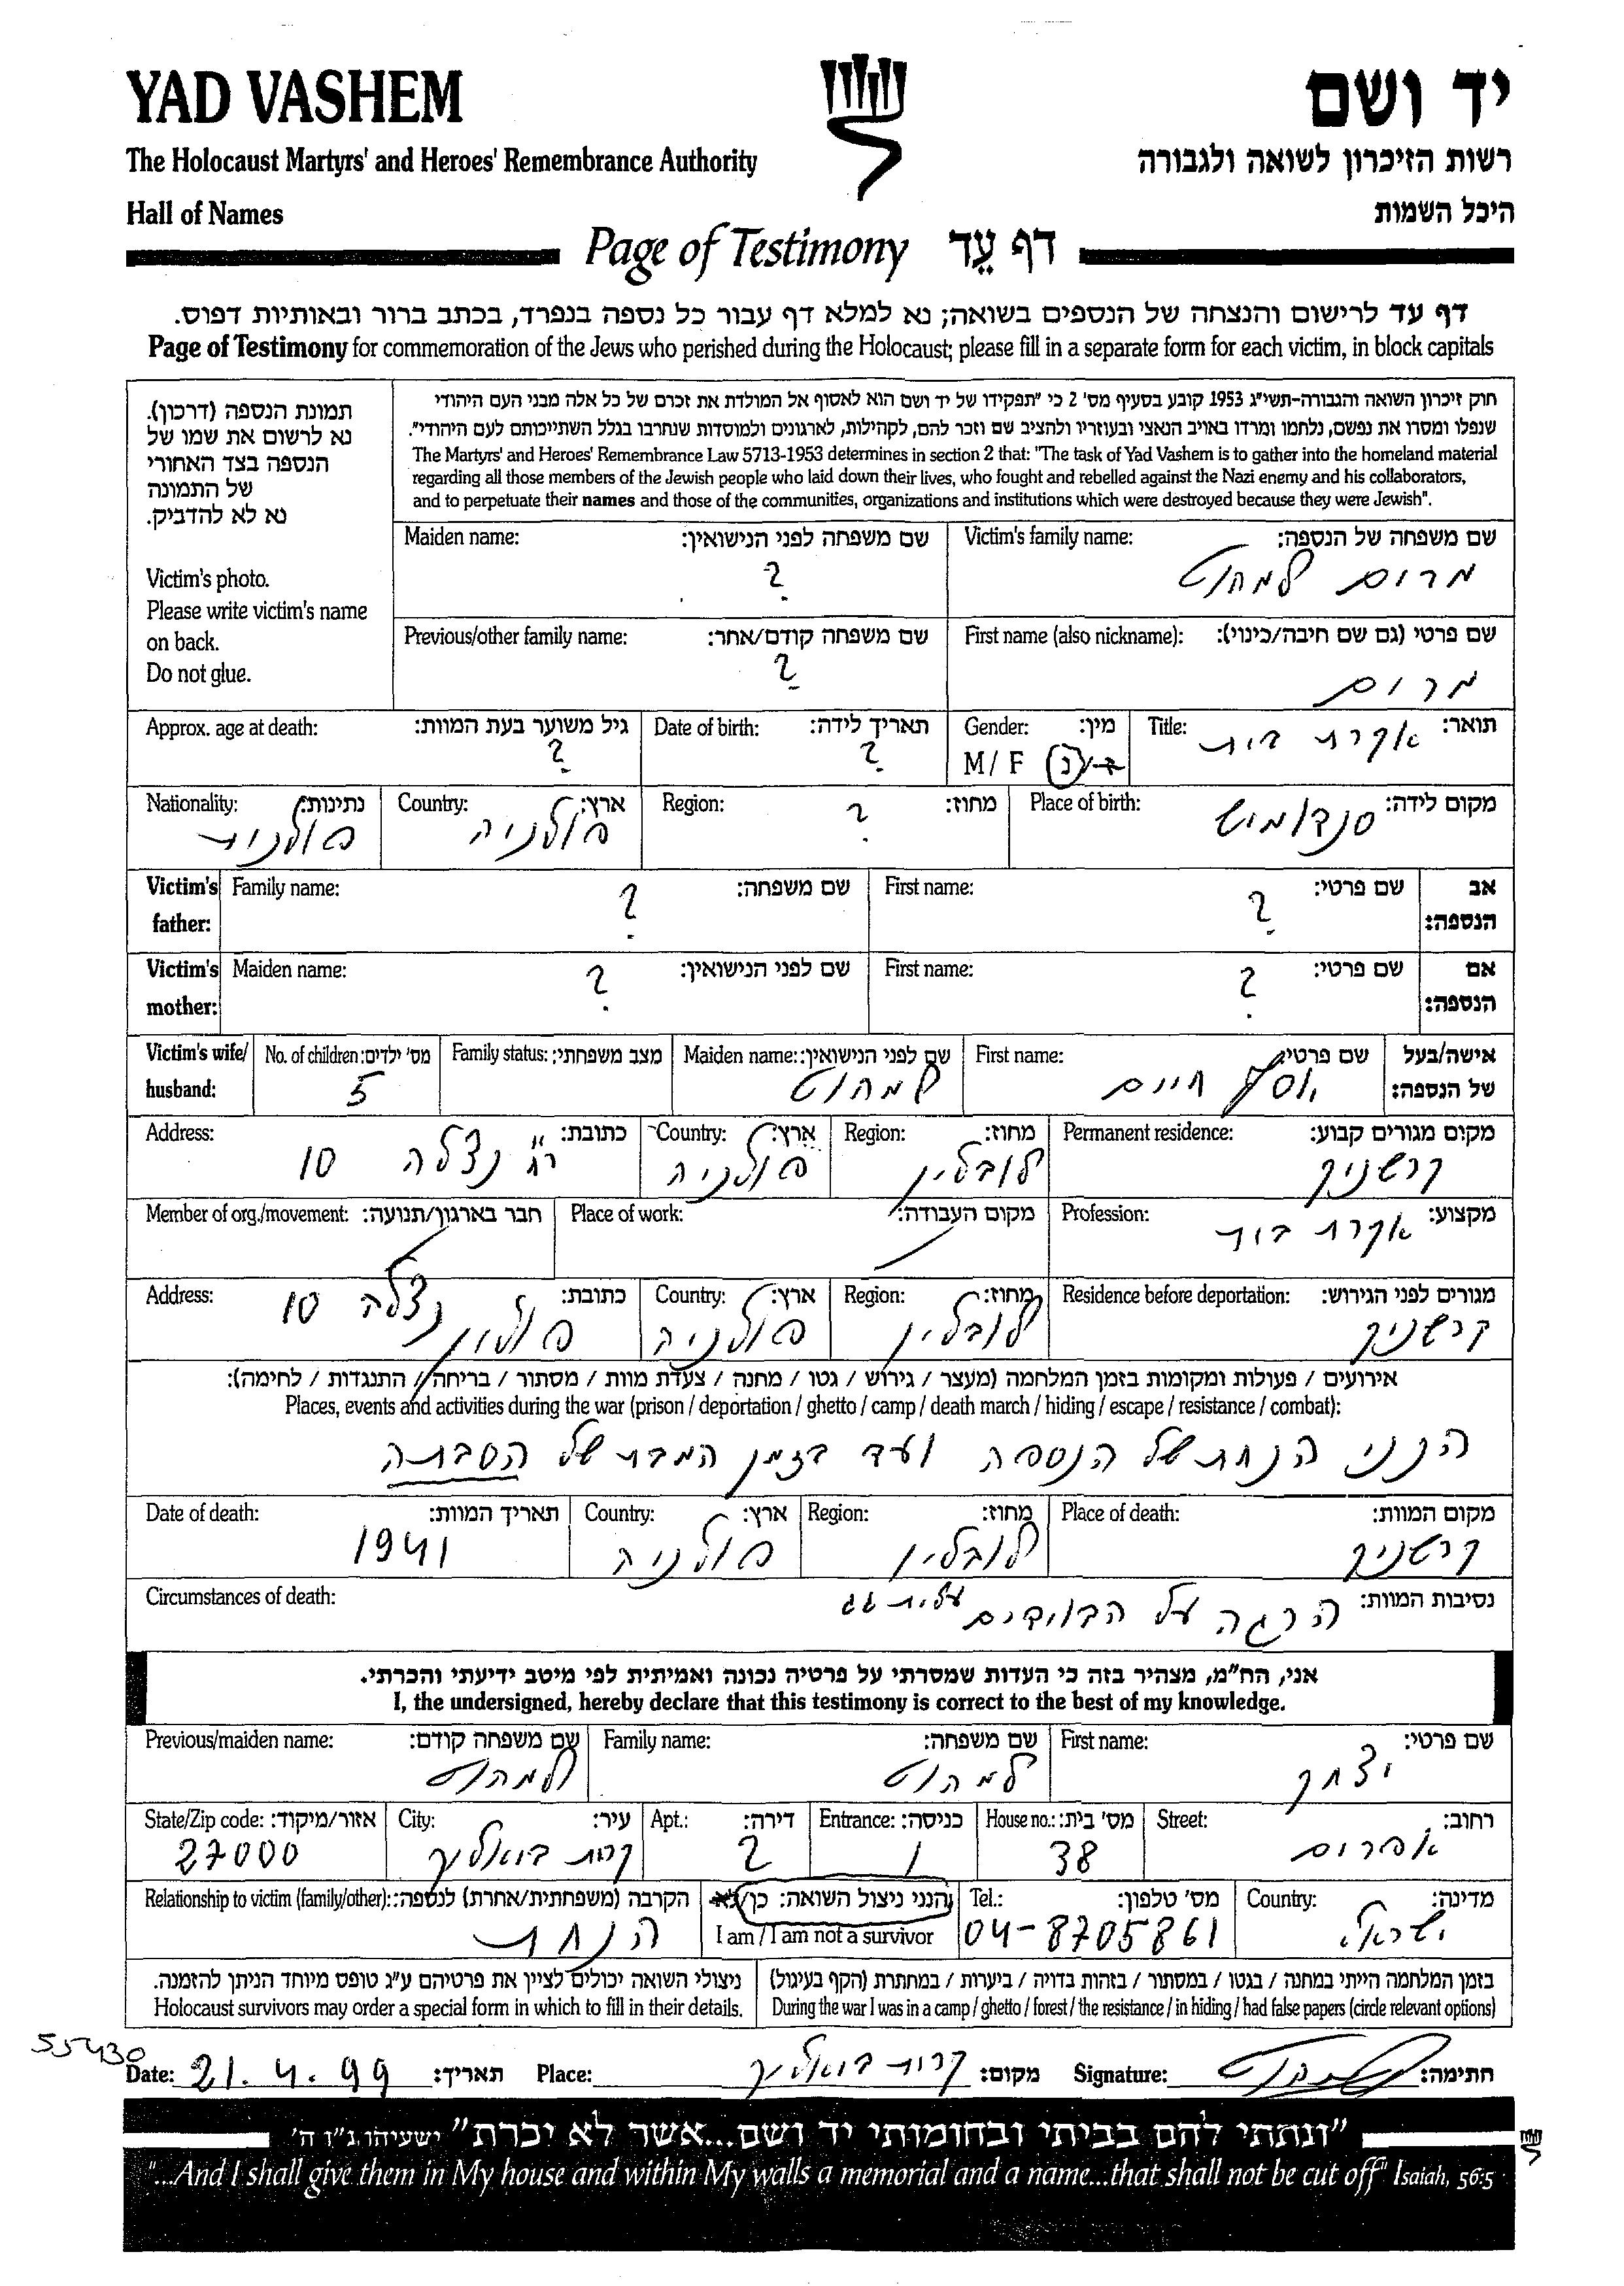 YAD VASHEM
יד ושם
The Holocaust Martyrs' and Heroes' Remembrance Authority
רשות הזיכרון לשואה ולגבורה
Hall of Names
היכל השמות
Page of Testimony דף עֵד
דף עד לרישום והנצחה של הנספים בשואה; נא למלא דף עבור כל נספה בנפרד, בכתב ברור ובאותיות דפוס.
Page of Testimony for commemoration of the Jews who perished during the Holocaust; please fill in a separate form for each victim, in block capitals
תמונת הנספה (דרכון).
נא לרשום את שמו של
הנספה בצד האחורי
של התמונה
נא לא להדביק.
Victim's photo.
Please write victim's name
on back.
Do not glue.
חוק זיכרון השואה והגבורה-תשי"ג 1953 קובע בסעיף מס' 2 כי "תפקידו של יד ושם הוא לאסוף אל המולדת את זכרם של כל אלה מבני העם היהודי
שנפלו ומסרו את נפשם, נלחמו ומרדו באויב הנאצי ובעוזריו ולהציב שם וזכר להם, לקהילות, לארגונים ולמוסדות שנחרבו בגלל השתייכותם לעם היהודי".
The Martyrs' and Heroes' Remembrance Law 5713-1953 determines in section 2 that: "The task of Yad Vashem is to gather into the homeland material
regarding all those members of the Jewish people who laid down their lives, who fought and rebelled against the Nazi enemy and his collaborators,
and to perpetuate their names and those of the communities, organizations and institutions which were destroyed because they were Jewish".
Victim's family name: שם משפחה של הנספה:
מרים למהוט
Maiden name: שם משפחה לפני הנישואין:
?
First name (also nickname): שם פרטי (גם שם חיבה/כינוי):
מרים
Previous/other family name: שם משפחה קודם/אחר:
?
Title: תואר: עקרת בית
Gender: מין:
M / F ז/נ
Date of birth: תאריך לידה:
?
Approx. age at death: גיל משוער בעת המוות:
?
Place of birth: מקום לידה: סנדומיש
Region: מחוז: ?
Country: ארץ: פולניה
Nationality: נתינות: פולנית
Victim's father: אב הנספה:
First name: שם פרטי: ?
Family name: שם משפחה: ?
Victim's mother: אם הנספה:
First name: שם פרטי: ?
Maiden name: שם לפני הנישואין: ?
Victim's wife/husband: אישה/בעל של הנספה:
First name: שם פרטי: יוסף חיים
Maiden name: שם לפני הנישואין: למהוט
Family status: מצב משפחתי:
No. of children: מס' ילדים: 5
Permanent residence: מקום מגורים קבוע: קרשניק
Region: מחוז: לובלין
Country: ארץ: פולניה
Address: כתובת: רח' נצלה 10
Profession: מקצוע: עקרת בית
Place of work: מקום העבודה:
Member of org./movement: חבר בארגון/תנועה:
Residence before deportation: מגורים לפני הגירוש: קרשניק
Region: מחוז: לובלין
Country: ארץ: פולניה
Address: כתובת: נצלה 10
אירועים / פעולות ומקומות בזמן המלחמה (מעצר / גירוש / גטו / מחנה / צעדת מוות / מסתור / בריחה / התנגדות / לחימה):
Places, events and activities during the war (prison / deportation / ghetto / camp / death march / hiding / escape / resistance / combat):
הנני הנכד של הנספה ועד בזמן של הסבתה
Place of death: מקום המוות: קרשניק
Region: מחוז: לובלין
Country: ארץ: פולניה
Date of death: תאריך המוות: 1941
Circumstances of death: נסיבות המוות: הרגה על
אני, הח"מ, מצהיר בזה כי העדות שמסרתי על פרטיה נכונה ואמיתית לפי מיטב ידיעתי והכרתי.
I, the undersigned, hereby declare that this testimony is correct to the best of my knowledge.
First name: שם פרטי: יצחק
Family name: שם משפחה: למהוט
Previous/maiden name: שם משפחה קודם: למהוט
Street: רחוב: אפרים
House no.: מס' בית: 38
Entrance: כניסה: 1
Apt.: דירה: 2
City: עיר: קרית ביאליק
State/Zip code: אזור/מיקוד: 27000
Country: מדינה: ישראל
Tel.: מס' טלפון: 04-8705861
הנני ניצול השואה: כן/לא
I am / I am not a survivor
Relationship to victim (family/other): הקרבה (משפחתית/אחרת) לנספה:
בזמן המלחמה הייתי במחנה / בגטו / במסתור / בזהות בדויה / ביערות / במחתרת (הקף בעיגול)
During the war I was in a camp / ghetto / forest / the resistance / in hiding / had false papers (circle relevant options)
ניצולי השואה יכולים לציין את פרטיהם ע"ג טופס מיוחד הניתן להזמנה.
Holocaust survivors may order a special form in which to fill in their details.
55430
Date: 21.4.99 תאריך: Place: קרית ביאליק מקום: Signature: חתימה:
"ונתתי להם בביתי ובחומותי יד ושם...אשר לא יכרת" ישעיהו נ"ו ה'
"...And I shall give them in My house and within My walls a memorial and a name...that shall not be cut off" Isaiah, 56:5